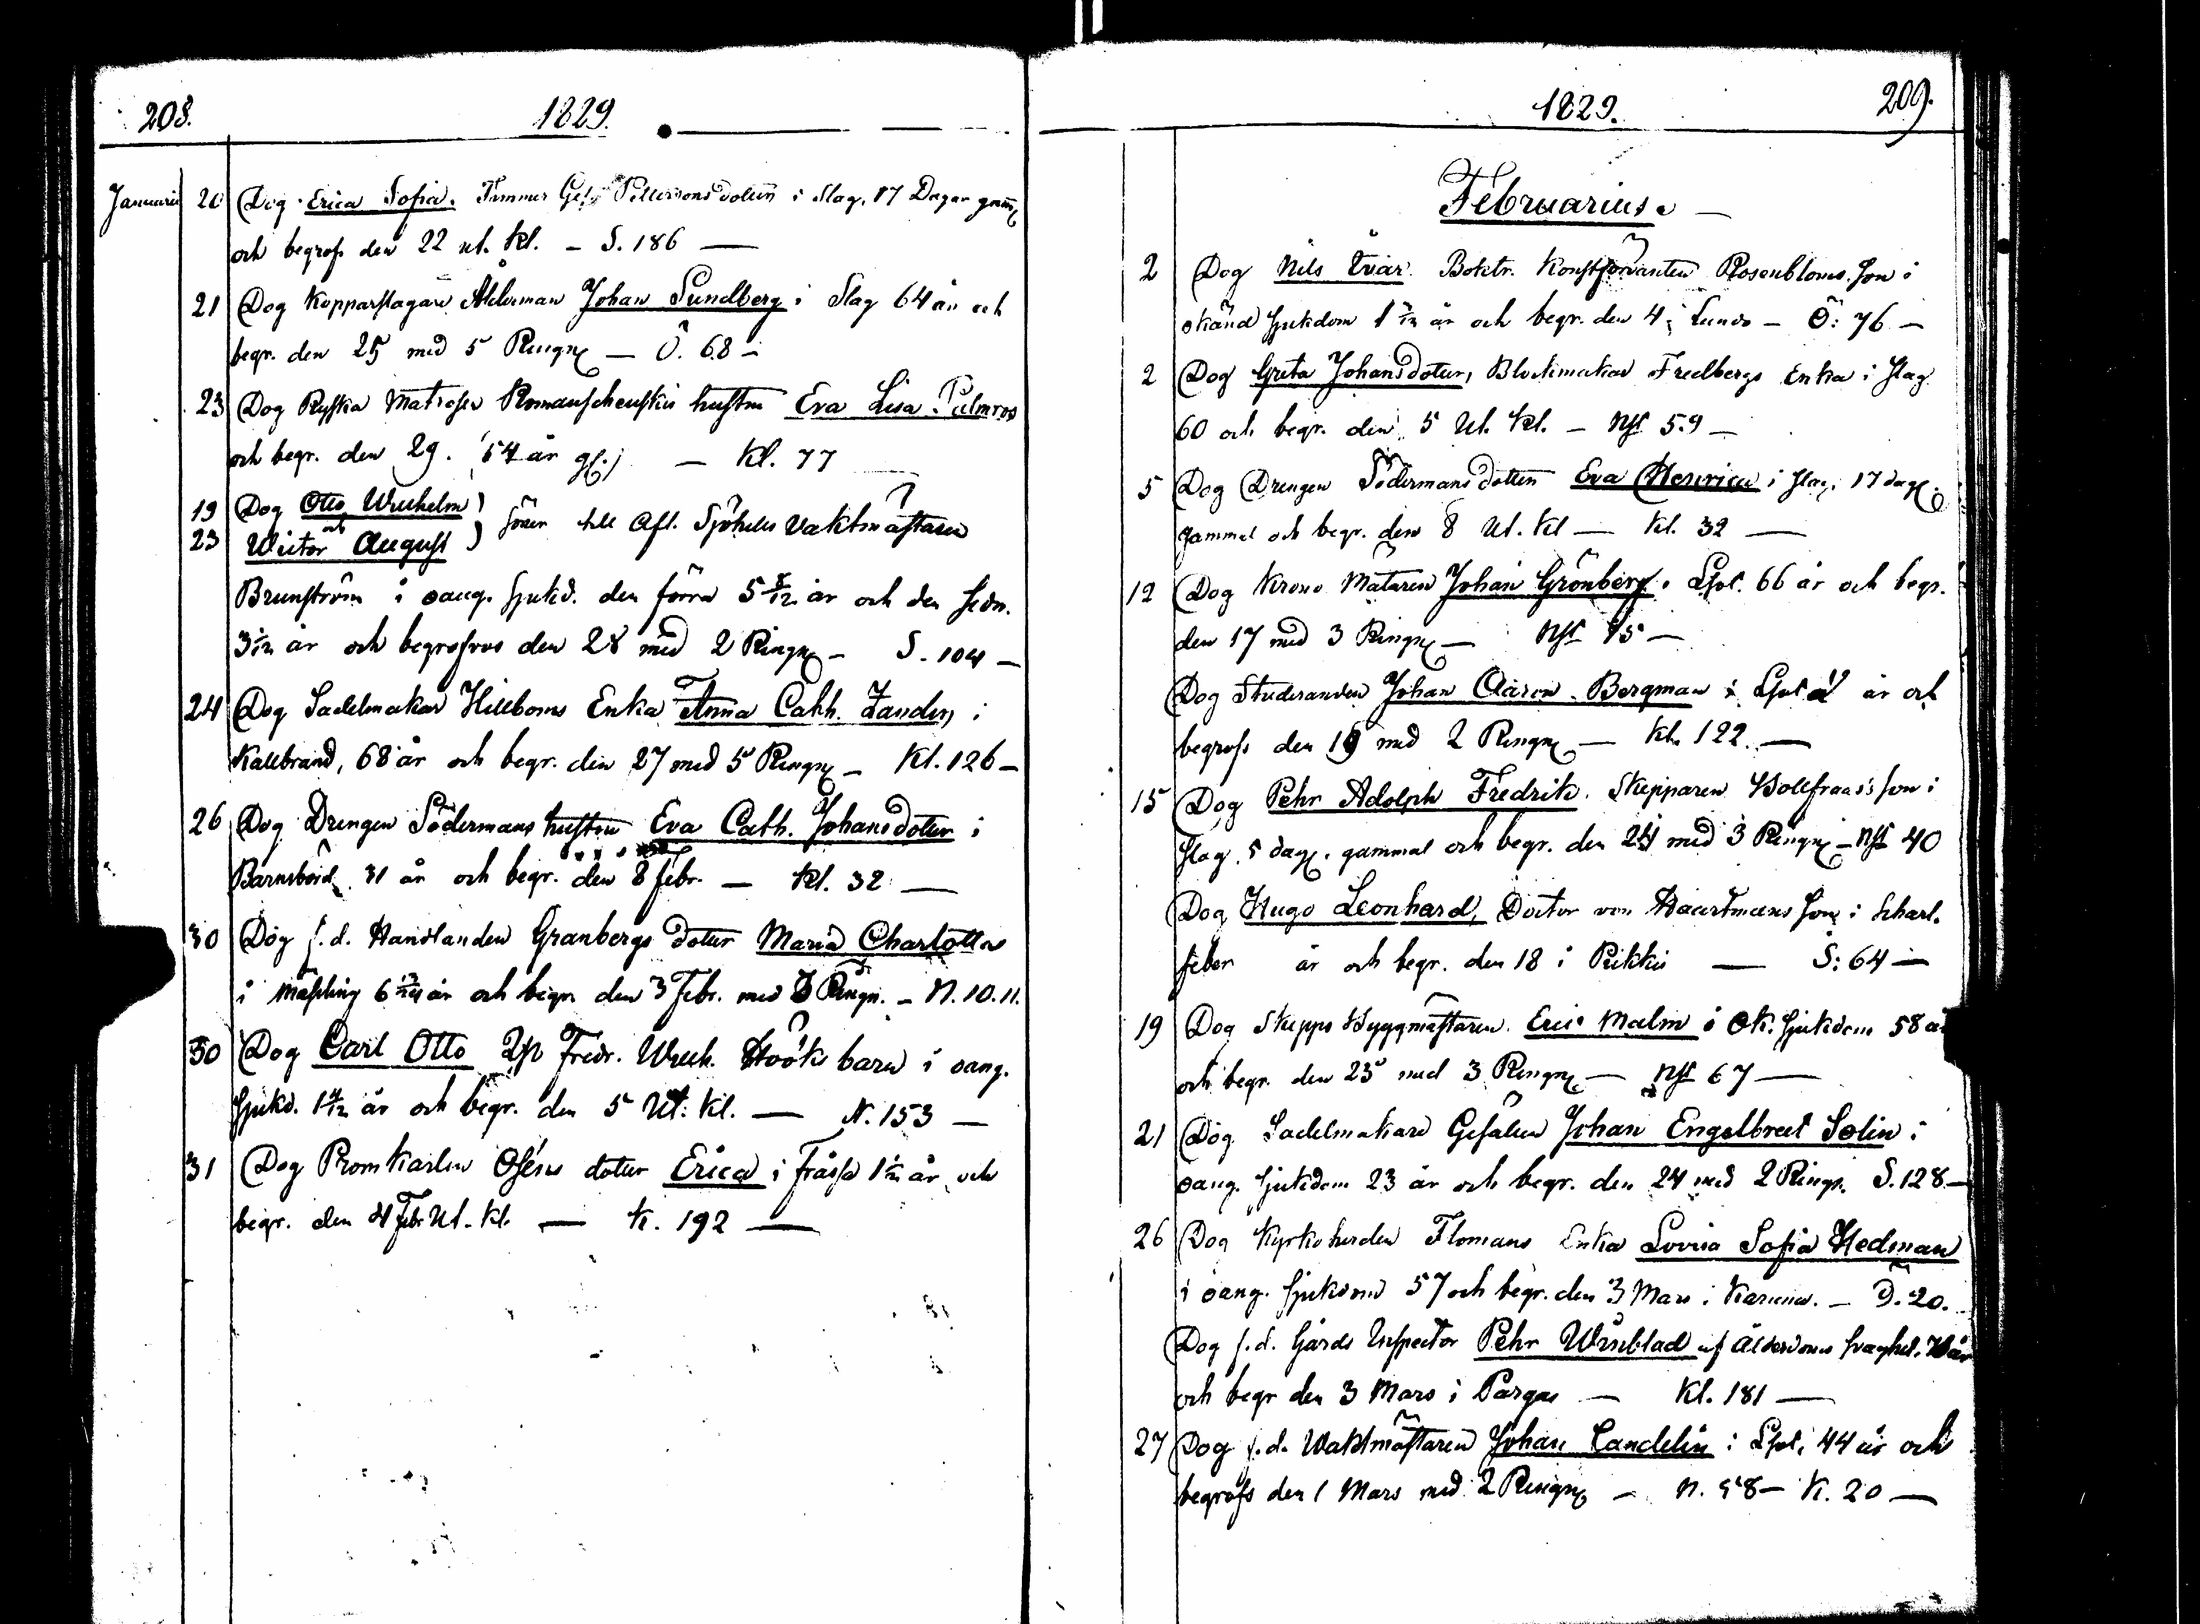 208.
1829.
Januarii 20 Dog Erica Sofia. Timmer Ges. Pettersons dotter i Slag, 17 Dagar gam
och begrofs den 22 ut. Kl. – S. 186 —
21 Dog Kopparslagare Ålderman Johan Sundberg i Slag 64 år och
begr. den 25 med 5 Ringn — Ö. 68 –
23 Dog Ryska Matrosen hustru Eva Lisa Palmros
och begr. den 29. (54 år gl.) — Kl. 77
19 Dog Otto Wilhelm
23 och Victor August söner till Afl. Sjötulls Vaktmästaren
Brunström i oang. sjukd. den förra 5 år och den sedn.
3 1/12 år och begrofvos den 28 med 2 Ringn – S. 104 –
24 Dog Sadelmakar Hillboms Enka Anna Cath. Zander, i
Kallbrand, 68 år och begr. den 27 med 5 Ringn – Kl. 126 –
26 Dog Drengen Södermans hustru Eva Cath. Johansdotter i
Barnsbörd 31 år och begr. den 8 febr. — Kl. 32 —
30 Dog f.d. Handlanden Granbergs dotter Maria Charlotta
i Mässling 6 år och begr. den 3 Febr. med Ringn. – N. 10. 11.
30 Dog Carl Otto Fredr. Wilh. Höök barn i oang.
sjukd. 1 år och begr. den 5 Ut. Kl. — N. 153 —
31 Dog Promkarlen dotter Erica i Frässel 1 år och
begr. den 4 Febr Ut. Kl. — K. 192 —
1829. 209.
Februarius. —
2 Dog Nils Ivar. Boktr. Konstförvanten Rosenbloms Son i
okänd sjukdom 1 år och begr. den 4 i Lundo – Ö: 76 –
2 Dog Greta Johansdotter, Blockmakar Fredbergs Enka i slag
60 och begr. den 5 Ut. Kl. – Nst 59 –
5 Dog Drengen Södermans dotter Eva Henrica i slag, 17 dag.
gammal och begr. den 8 Ut. Kl — Kl. 32 —
12 Dog Krono Mätaren Johan Grönberg i Lsot. 66 år och begr.
den 17 med 3 Ringn — Nst 15 —
Dog Studeranden Johan Bergman i Lsot år och
begrofs den 19 med 2 Ringn — Kl. 122. —
15 Dog Pehr Adolph Fredrik. Skepparen son i
slag, 5 dag. gammal och begr. den 24 med 3 Ringn – Nst 40
Dog Hugo Leonhard, Doctor von Haartmans son i Scharl.
feber år och begr. den 18 i Pikkis — S: 64 —
19 Dog Skepps Byggmästaren Eric Malm i Ok. sjukdom 58 år
och begr. den 25 med 3 Ringn — Nst 67 —
21 Dog Sadelmakare Gesällen Johan Engelbrect Solin i
oang. sjukdom 23 år och begr. den 24 med 2 Ringn. S. 128 –
26 Dog Kyrkoherden Flomans Enka Lovisa Sofia Hedman
i oang. sjukdom 57 och begr. den 3 Mars i Karuna. – Ö. 20.
Dog f.d. Gårds Inspector Pehr Winblad af Ålderdoms svaghet, år
och begr den 3 Mars i Pargas — Kl. 181 —
27 Dog f.d. Waktmästaren Johan Candelin i Lsot, 44 år och
begrofs den 1 Mars med 2 Ringn – N. 58 – K. 20 —